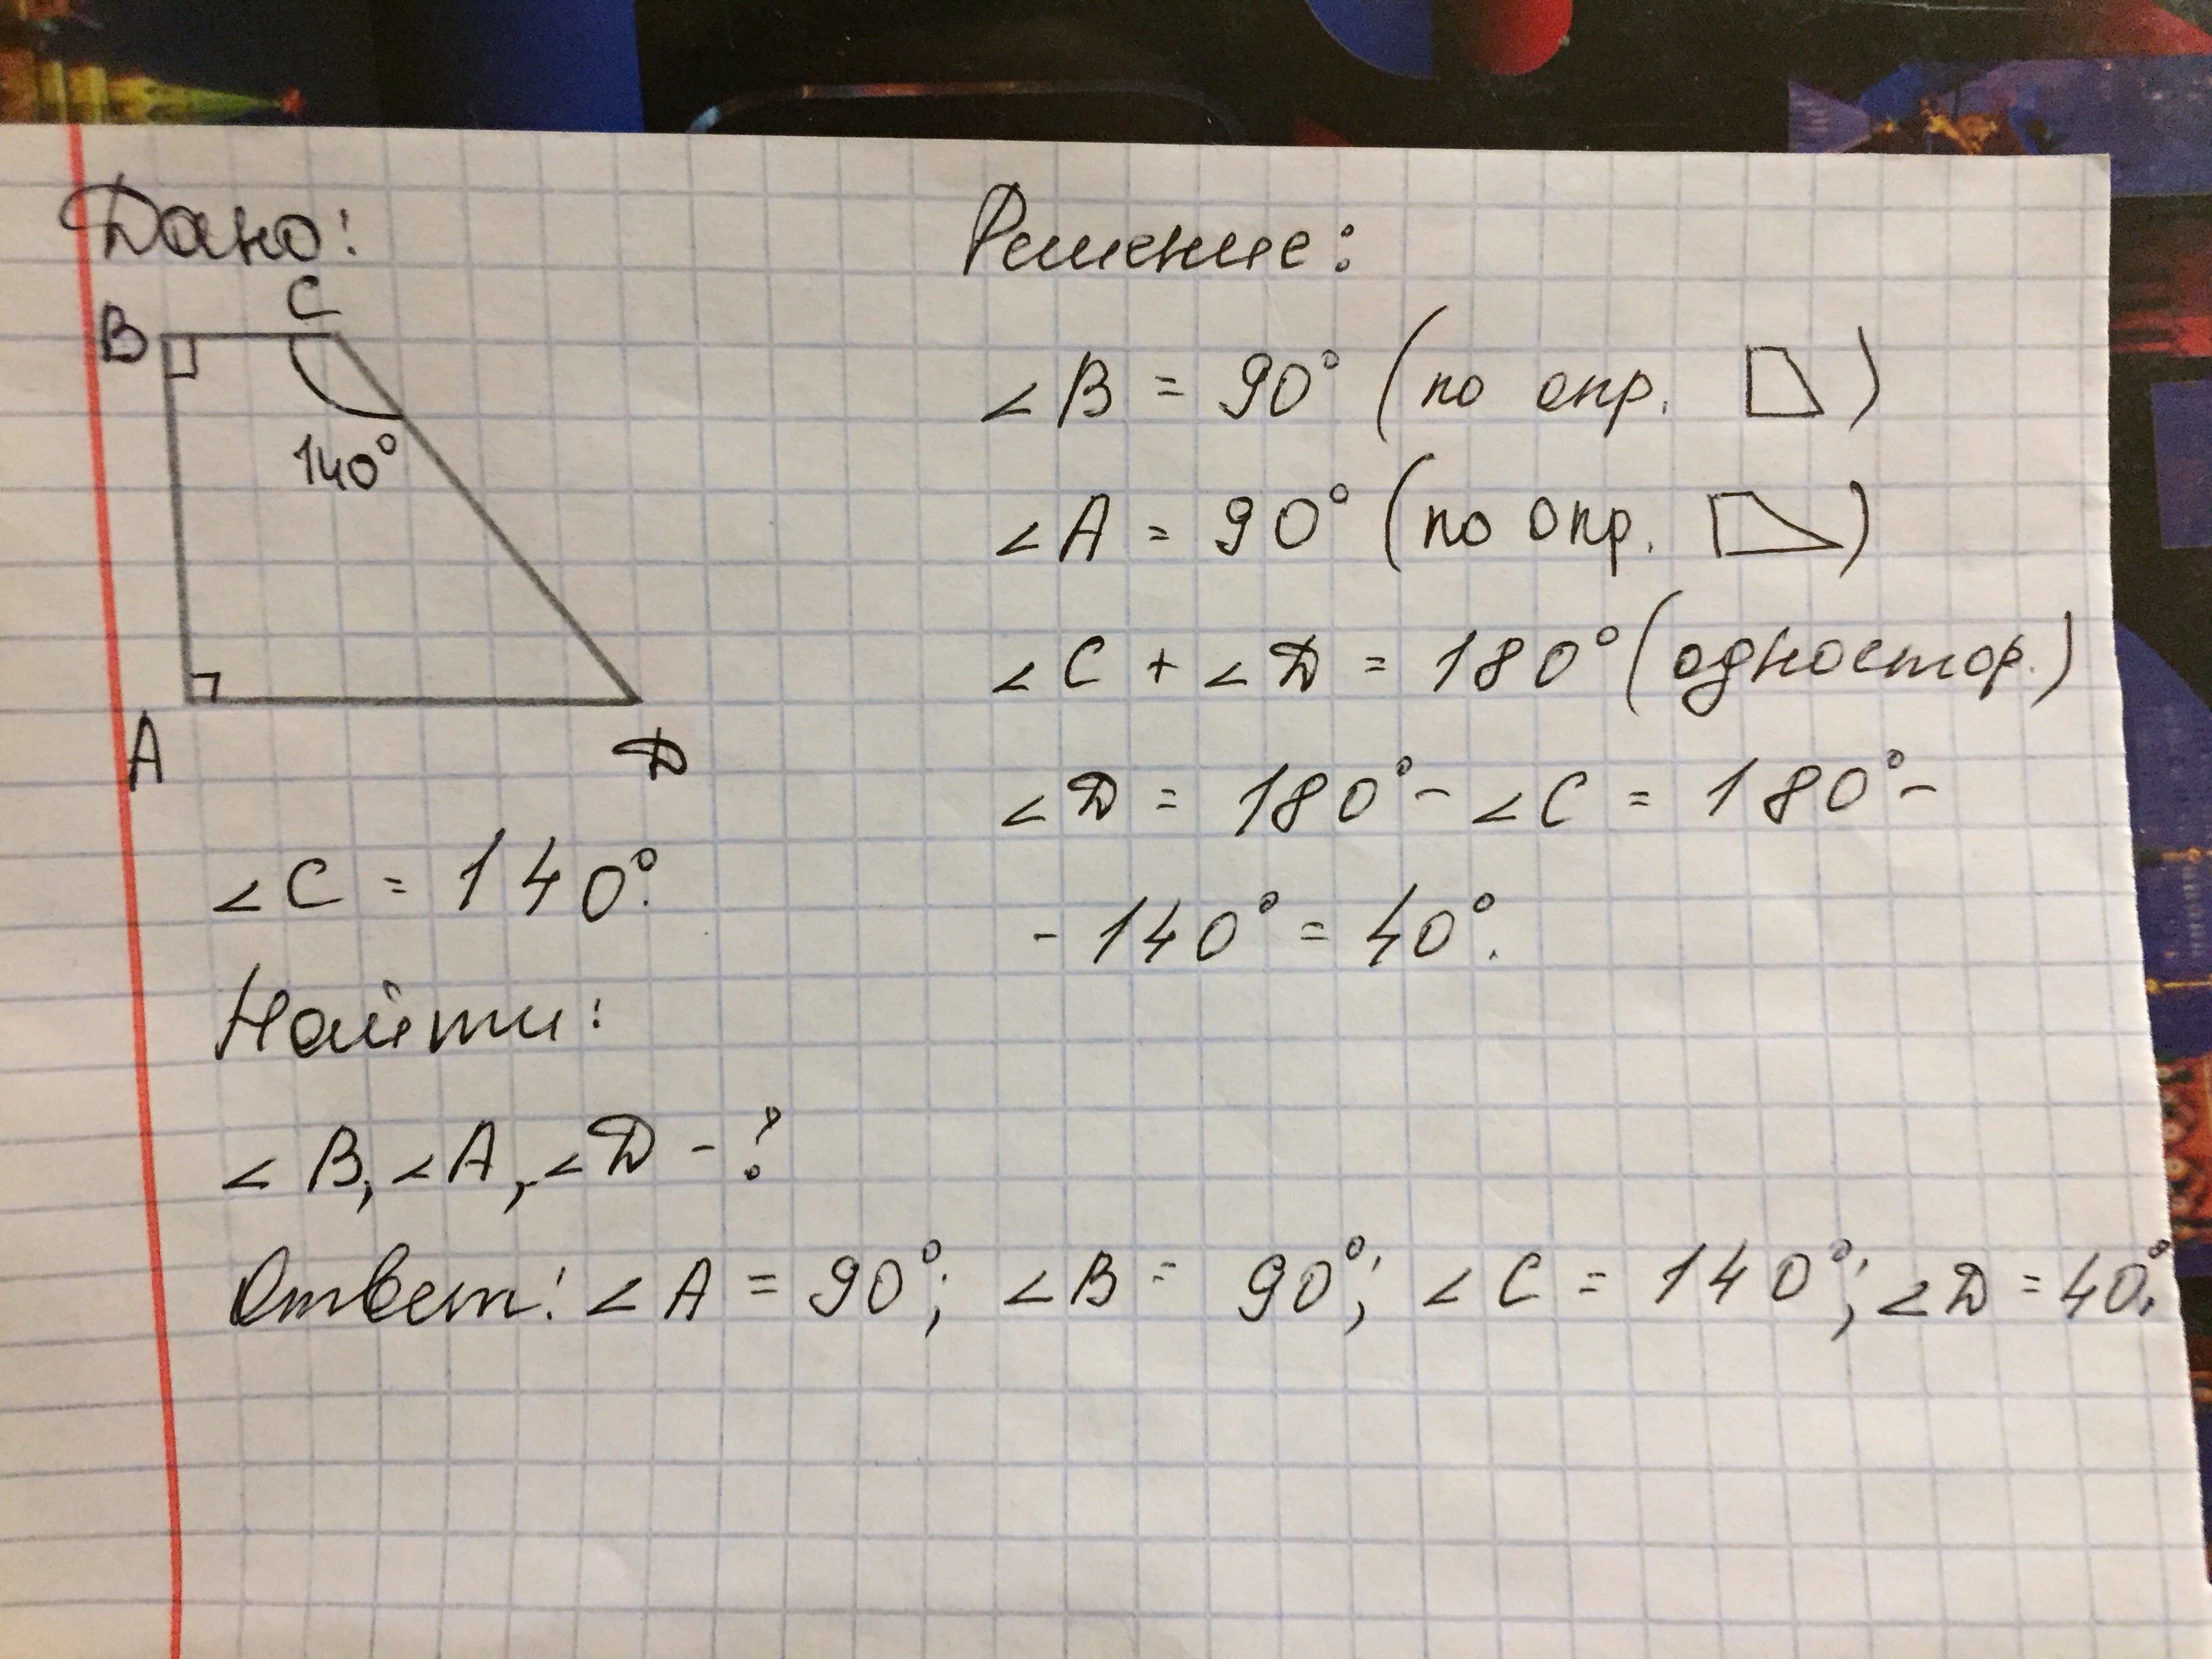 Дано:
B C
140°
A D
∠C = 140°.
Найти:
∠B, ∠A, ∠D - ?
Решение:
∠B = 90° (по опр. )
∠A = 90° (по опр. )
∠C + ∠D = 180° (одностор.)
∠D = 180° - ∠C = 180° -
- 140° = 40°.
Ответ: ∠A = 90°; ∠B = 90°; ∠C = 140°; ∠D = 40°.